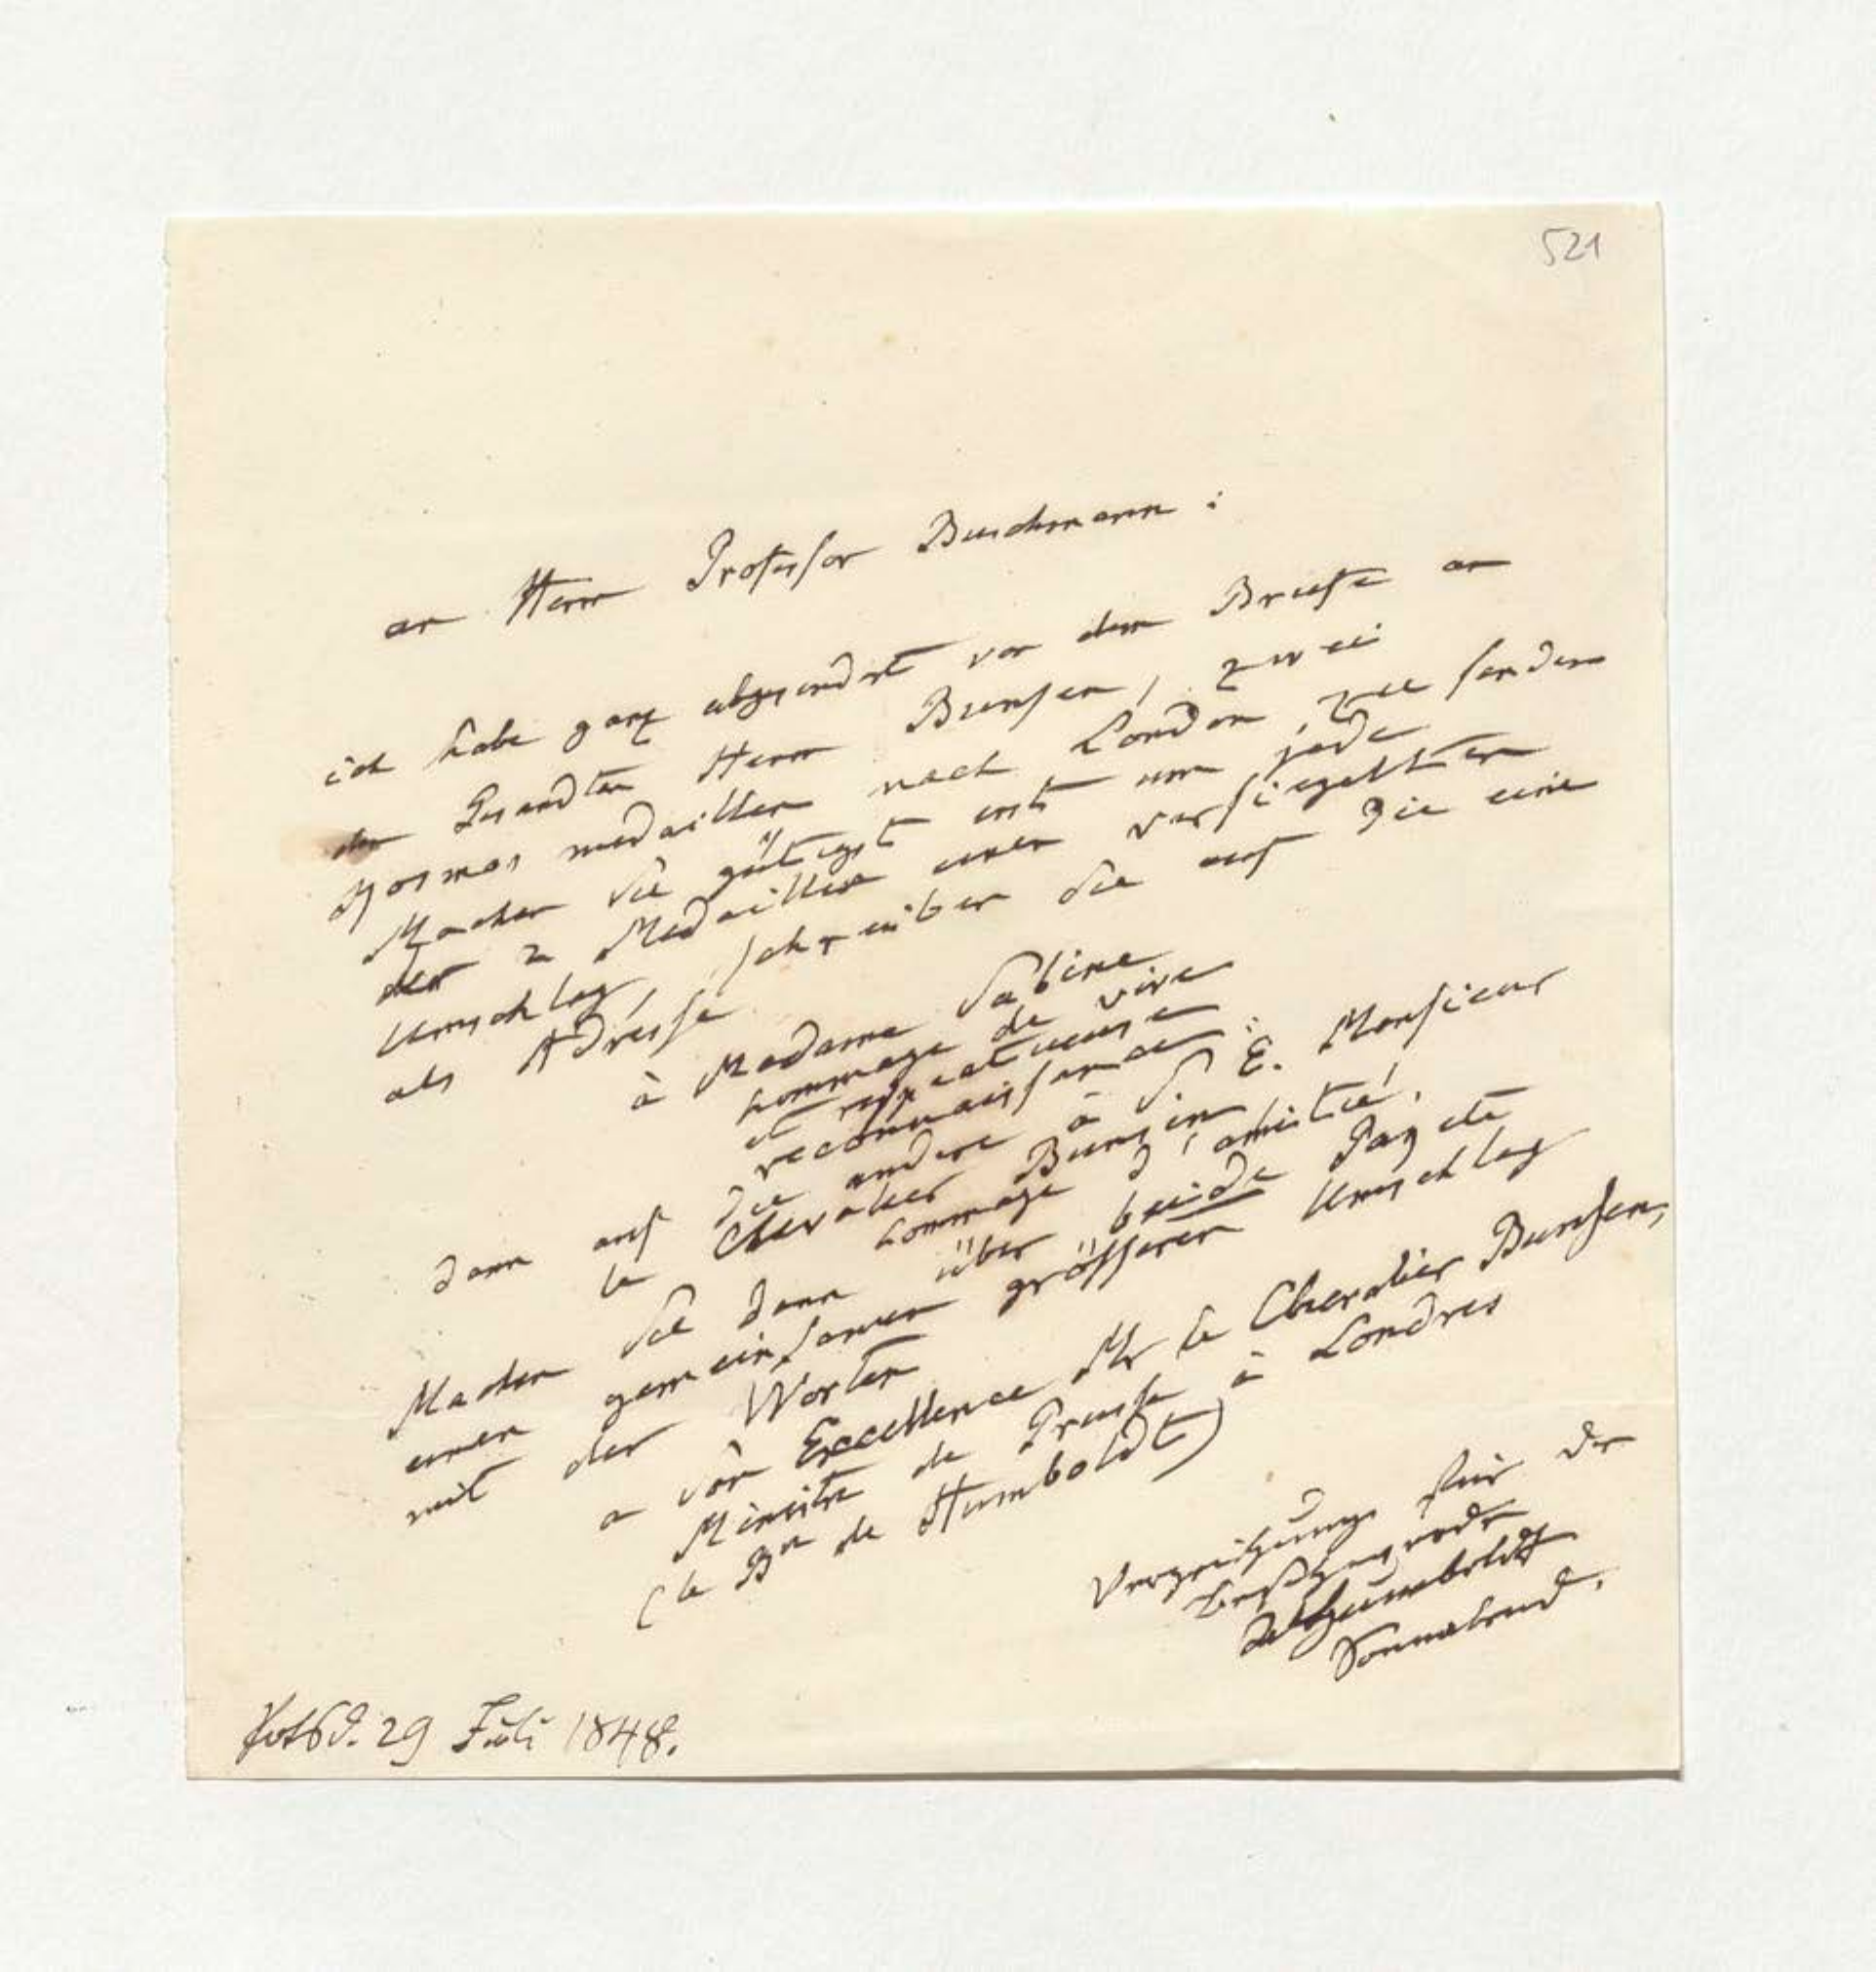 521
an Herrn Professor Buschmann:
ich habe ganz abgesondert von dem Briefe an
den Gesandten Herrn Bunsen, zwei
Kosmos medaillen nach London zu senden
Machen Sie gütigst erst um jede
der 2 Medaillen einen versiegelten
Umschlag, schreiben Sie auf die eine
als Adresse
à Madame Sabine
hommage de vive
et respectueuse
reconnaissance:
dann auf die andere à S. E. Monsieur
le Chevalier Bunsen
hommage d'amitié.
Machen Sie dann über beide Pakete
einen gemeinsamen grösseren Umschlag
mit den Worten
a Son Excellence Mr le Chevalier Bunsen,
Ministre de Prusse à Londres
(le Bn de Humboldt)
Verzeihung für die
AvHumboldt
Sonnabend.
Potsd. 29 Juli 1848.